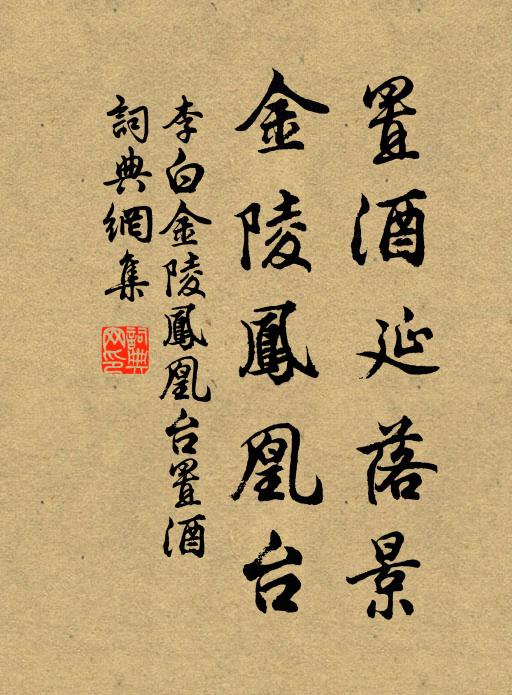 置酒延落景
金陵鳳凰台
李白金陵鳳凰台置酒
詞典網集
詞典
网印